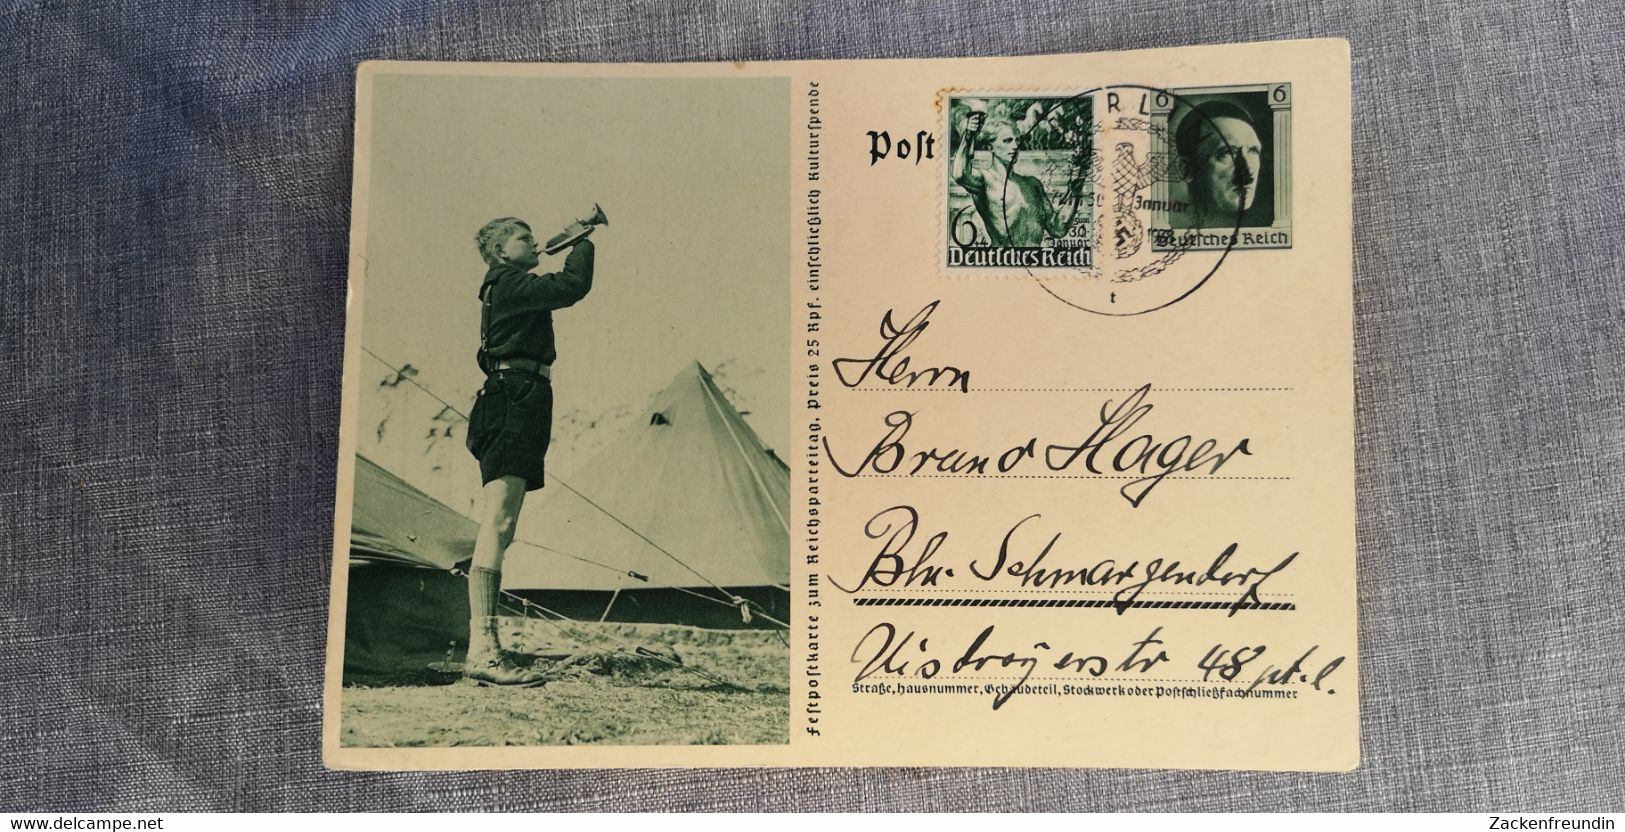 Festpostkarte zum Reichsparteitag, Preis 25 Rpf. einschließlich Kulturspende
Post
6+4
Zum
30
Januar
Deutsches Reich
6 6
Deutsches Reich
RL
Zum 30 Januar
1938
t
Herrn
Hager
Bln. Schmargendorf
48 pt. l.
Straße, Hausnummer, Gebäudeteil, Stockwerk oder Postschließfachnummer
delcampe.net
Zackenfreundin